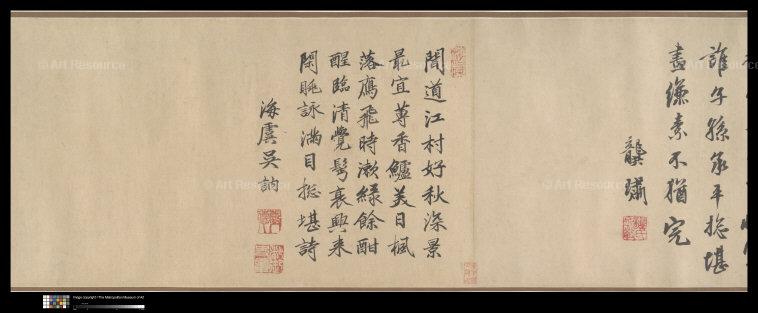 盡縑素不猶完
龔璛
聞道江村好秋深景
最宜蓴香鱸美日楓
落鴈飛時漱綠餘酣
醒臨清覺鬂衰興来
閑眺詠滿目揔堪詩
海虞吳訥
© Art Resource
© Art Resource
© Art Resource
© Art Resource
Image copyright ©The Metropolitan Museum of Art